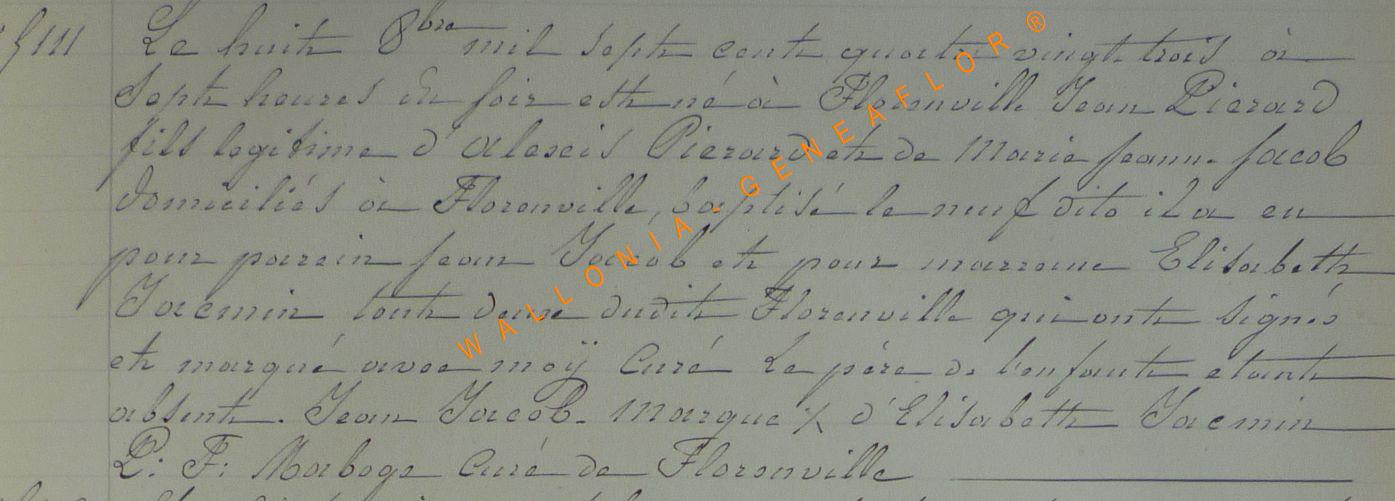 f 111 Le huit 8bre mil sept cent quatre vingt trois à
Sept heures du soir est né à Florenville Jean Pierard
fils legitime d'Alexis Pierard et de Marie Jeanne Jacob
domiciliés à Florenville, baptisé le neuf dito il a eu
pour parein Jean Jacob et pour marraine Elisabeth
Jacmin tout deux dudit Florenville qui ont signés
et marqué avec moÿ Curé Le père de l'enfant etant
absent. Jean Jacob. Marque X d'Elisabeth Jacmin
P: F: Maboge Curé de Florenville
WALLONIA-GENEAFLOR®